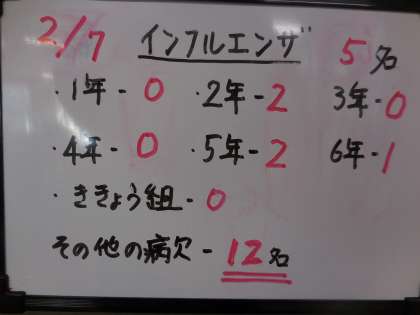 2/7 インフルエンザ 5名
・1年-0 ・2年-2 3年-0
・4年-0 ・5年-2 6年-1
・ききょう組-0
その他の病欠-12名